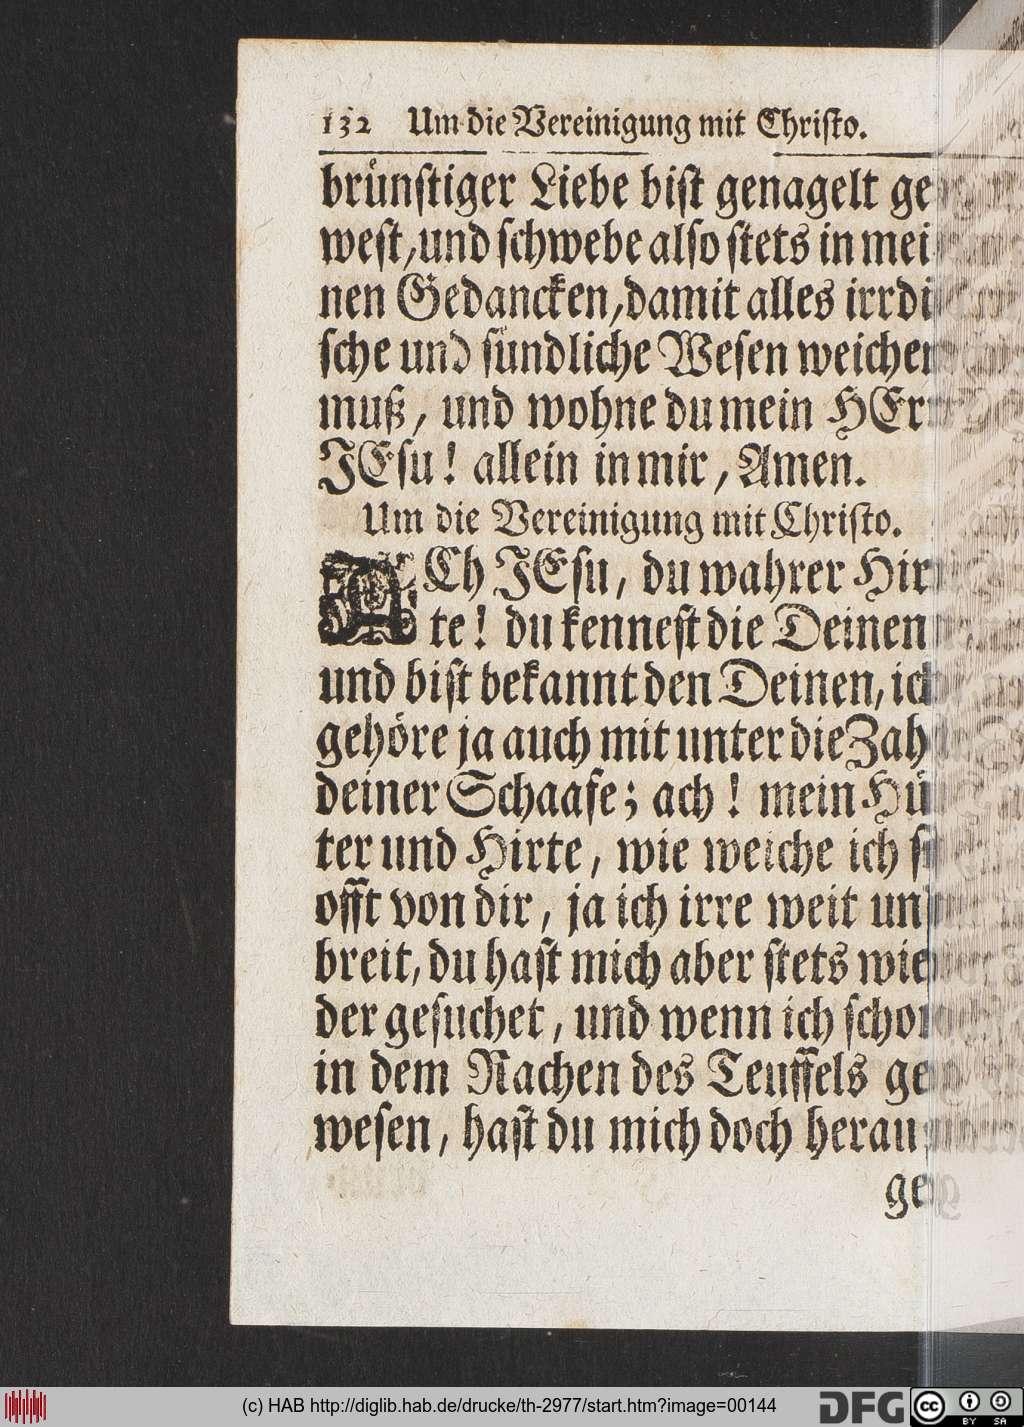 132 Um die Vereinigung mit Christo.
brünstiger Liebe bist genagelt ge
west, und schwebe also stets in mei
nen Gedancken, damit alles irrdi
sche und sündliche Wesen weichen
muß, und wohne du mein HErr
JEsu! allein in mir, Amen.
Um die Vereinigung mit Christo.
ACh JEsu, du wahrer Hir
te! du kennest die Deinen
und bist bekannt den Deinen, ich
gehöre ja auch mit unter die Zahl
deiner Schaafe; ach! mein Hü
ter und Hirte, wie weiche ich so
offt von dir, ja ich irre weit und
breit, du hast mich aber stets wie
der gesuchet, und wenn ich schon
in dem Rachen des Teuffels ge
wesen, hast du mich doch heraus
ge
(c) HAB http://diglib.hab.de/drucke/th-2977/start.htm?image=00144
DFG
cc BY SA